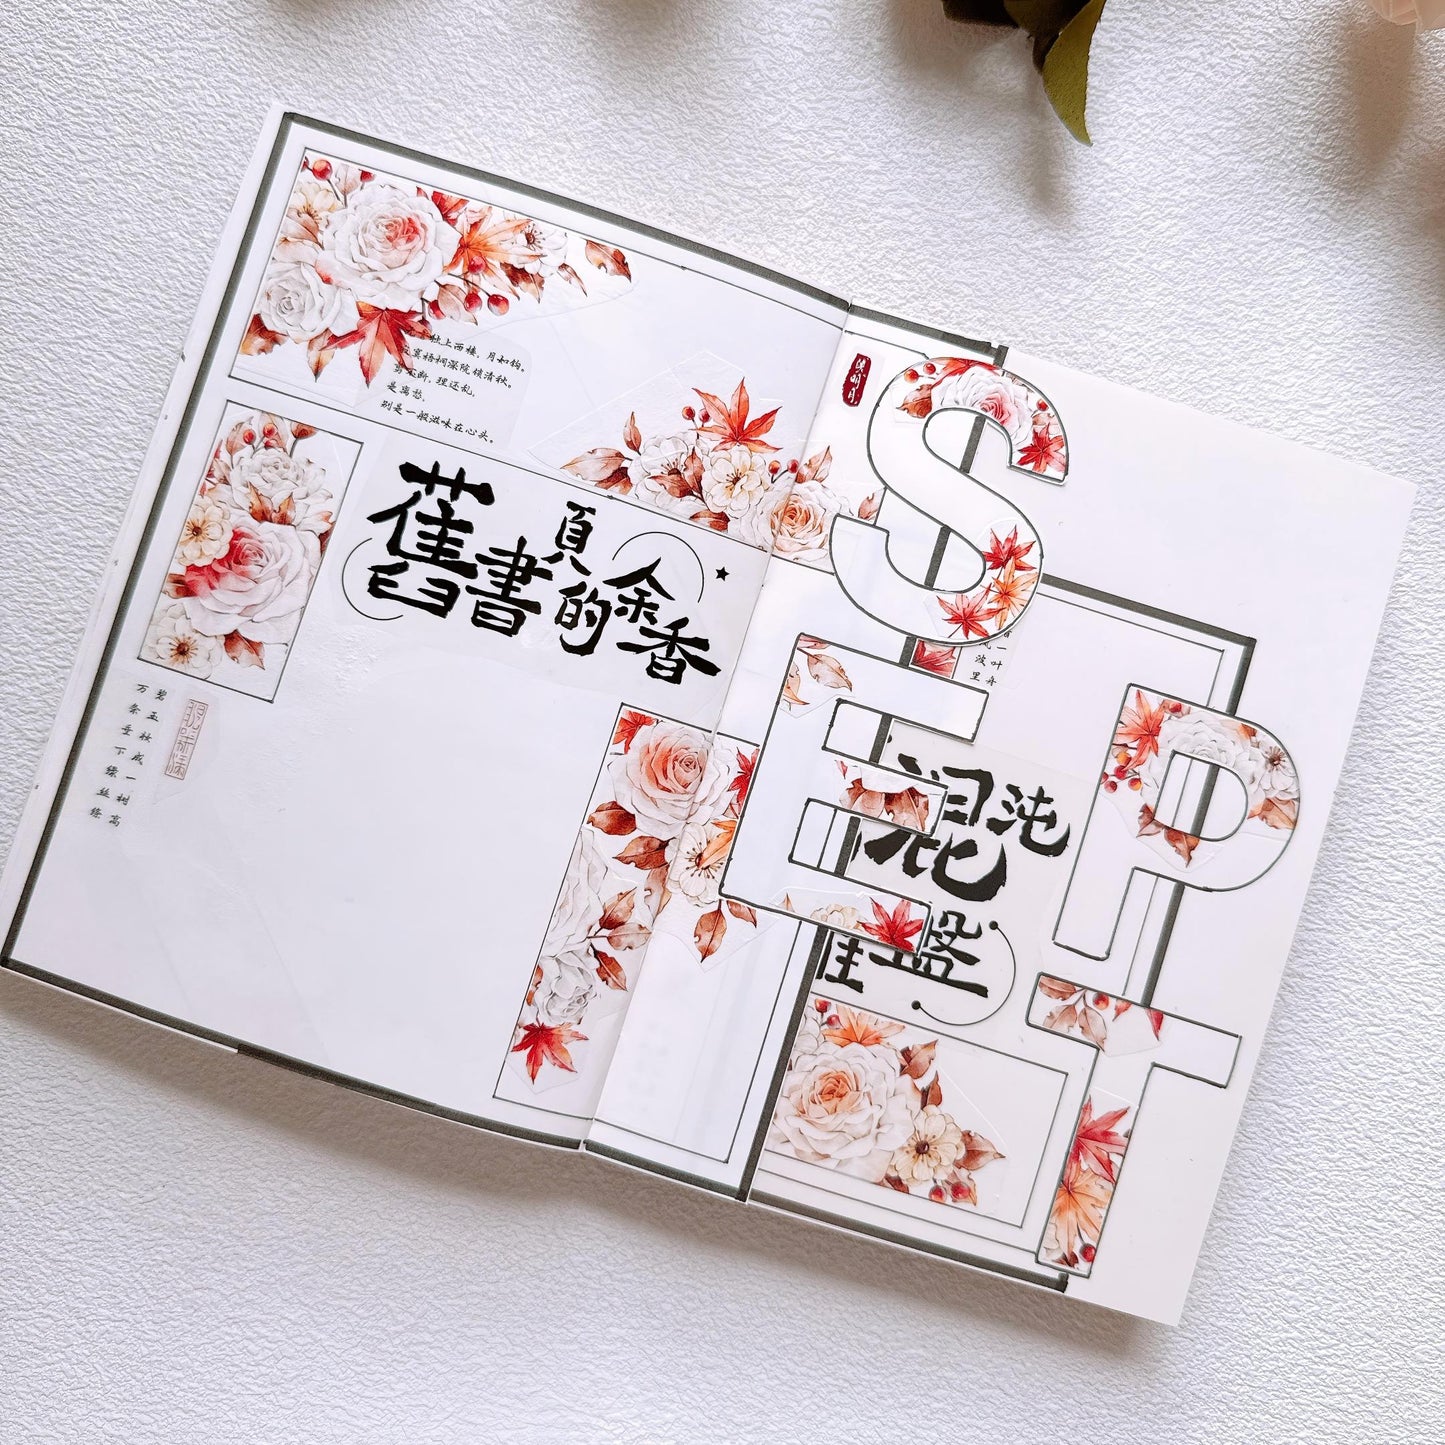 独上西楼，月如钩。
寞梧桐深院锁清秋。
剪不断，理还乱，
是离愁，
别是一般滋味在心头。
舊書頁的余香
碧玉妆成一树高
万条垂下绿丝绦
SEPT
一叶舟
波里
混沌
盤